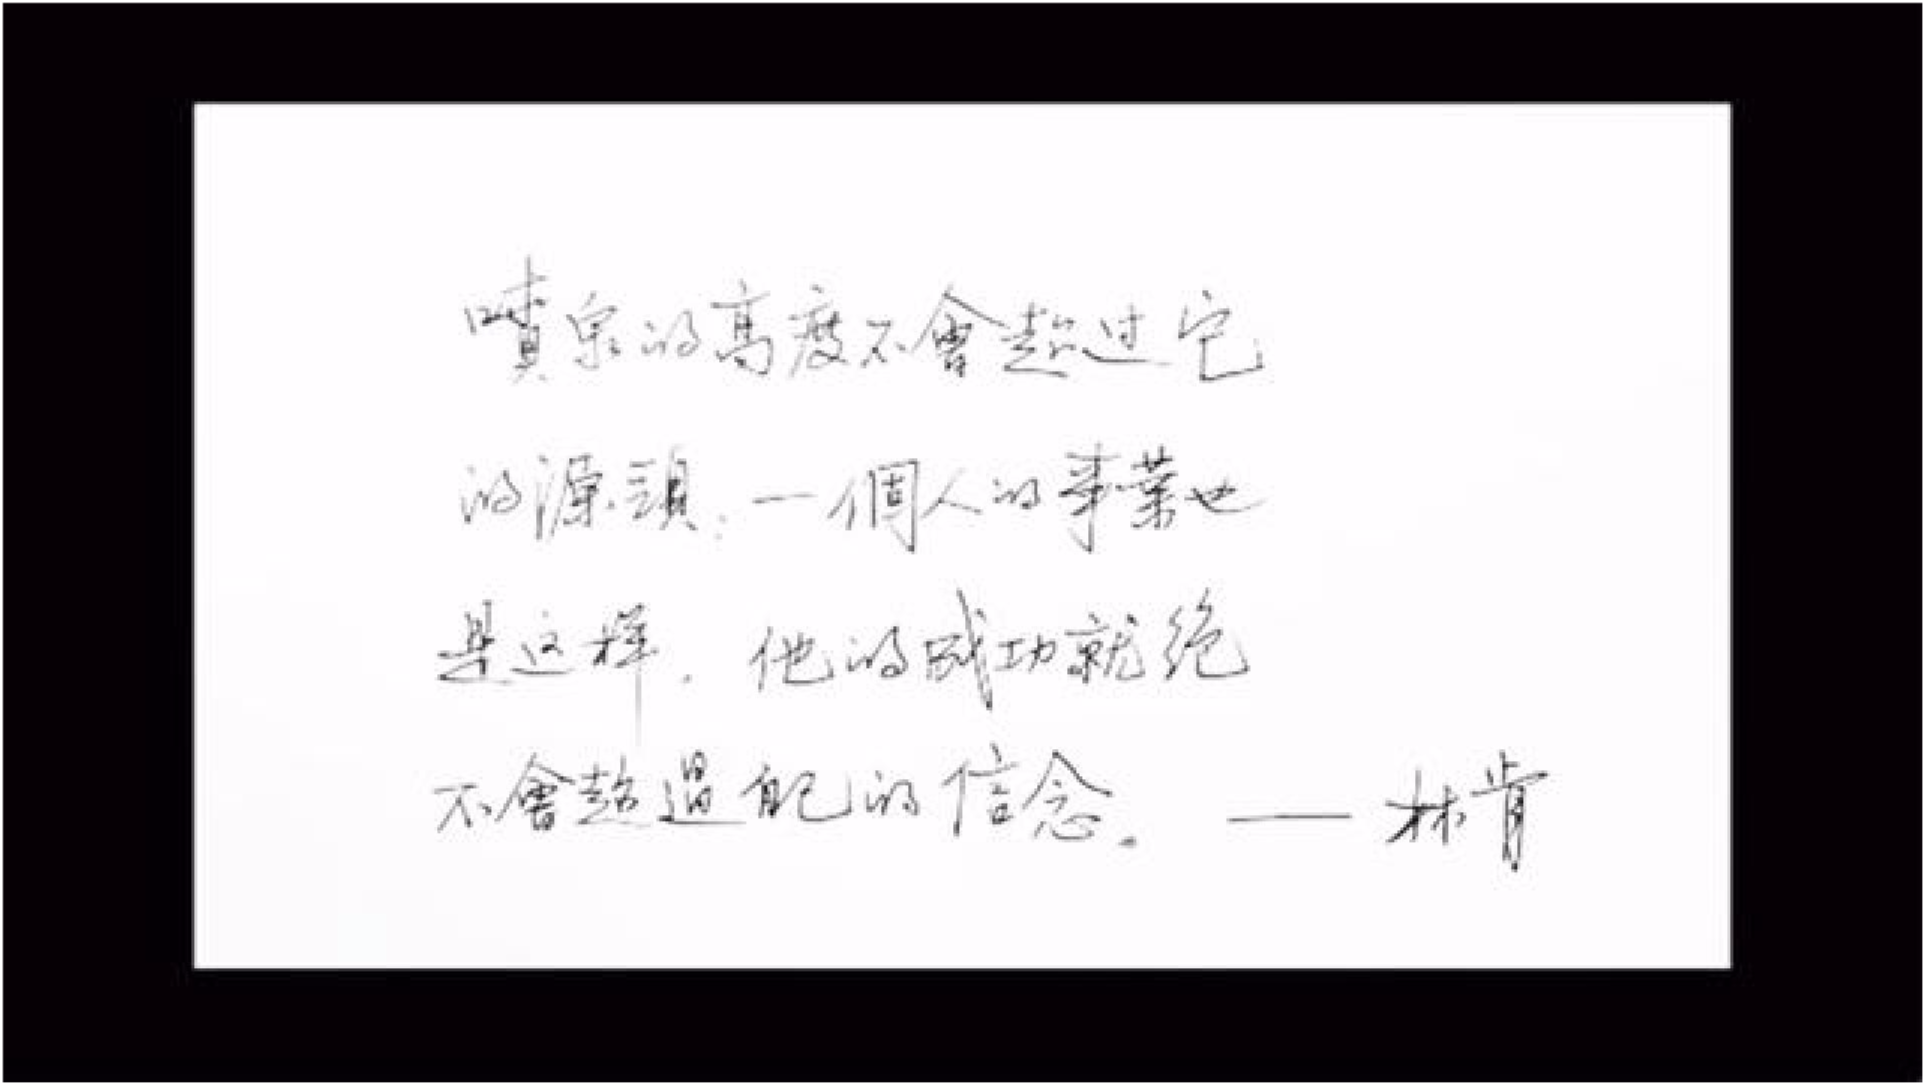 噴泉的高度不會超过它
的源頭；一個人的事業也
是这样，他的成功就绝
不會超過自己的信念。——林肯